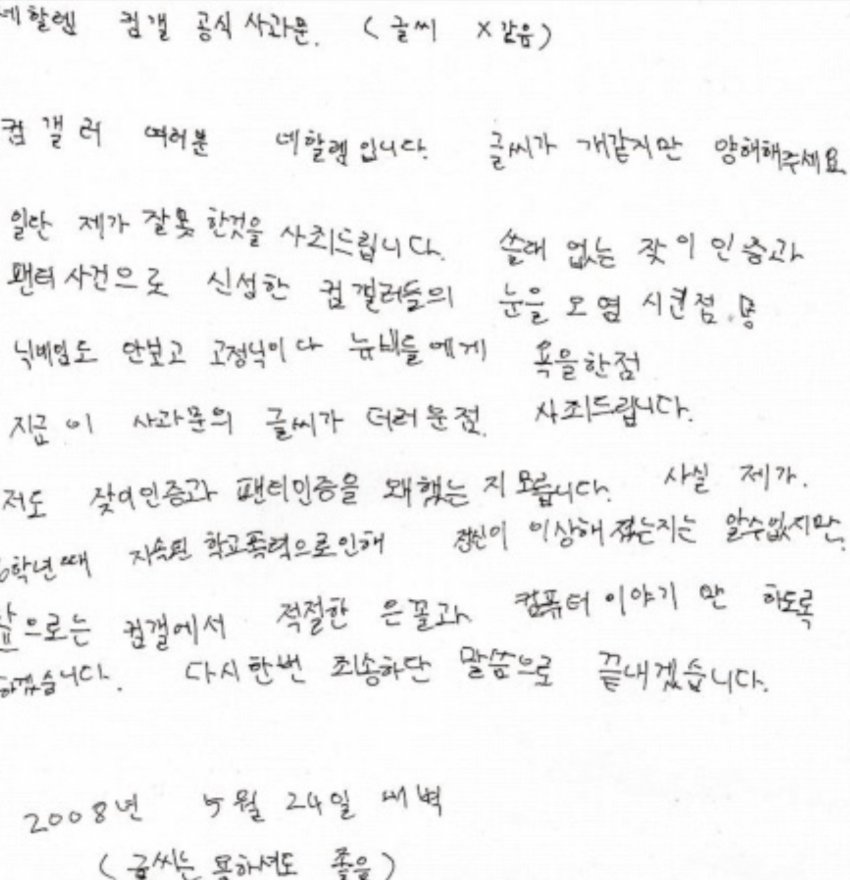 네할렘 컴갤 공식 사과문. (글씨 X같음)
컴갤러 여러분 네할렘입니다. 글씨가 개같지만 양해해주세요
일단 제가 잘못 한것을 사죄드립니다. 쓸데 없는 잦이 인증과
팬티사건으로 신성한 컴갤러들의 눈을 오염 시킨점.
닉네임도 안보고 고정닉이다 뉴비들에게 욕을한점
지금 이 사과문의 글씨가 더러운점. 사죄드립니다.
저도 잦이인증과 팬티인증을 왜했는지 모릅니다. 사실 제가.
6학년때 지속된 학교폭력으로인해 정신이 이상해졌는지는 알수없지만.
앞으로는 컴갤에서 적절한 은꼴과 컴퓨터 이야기만 하도록
하겠습니다. 다시한번 죄송하단 말씀으로 끝내겠습니다.
2008년 5월 24일 새벽
(글씨는 욕하셔도 좋음)